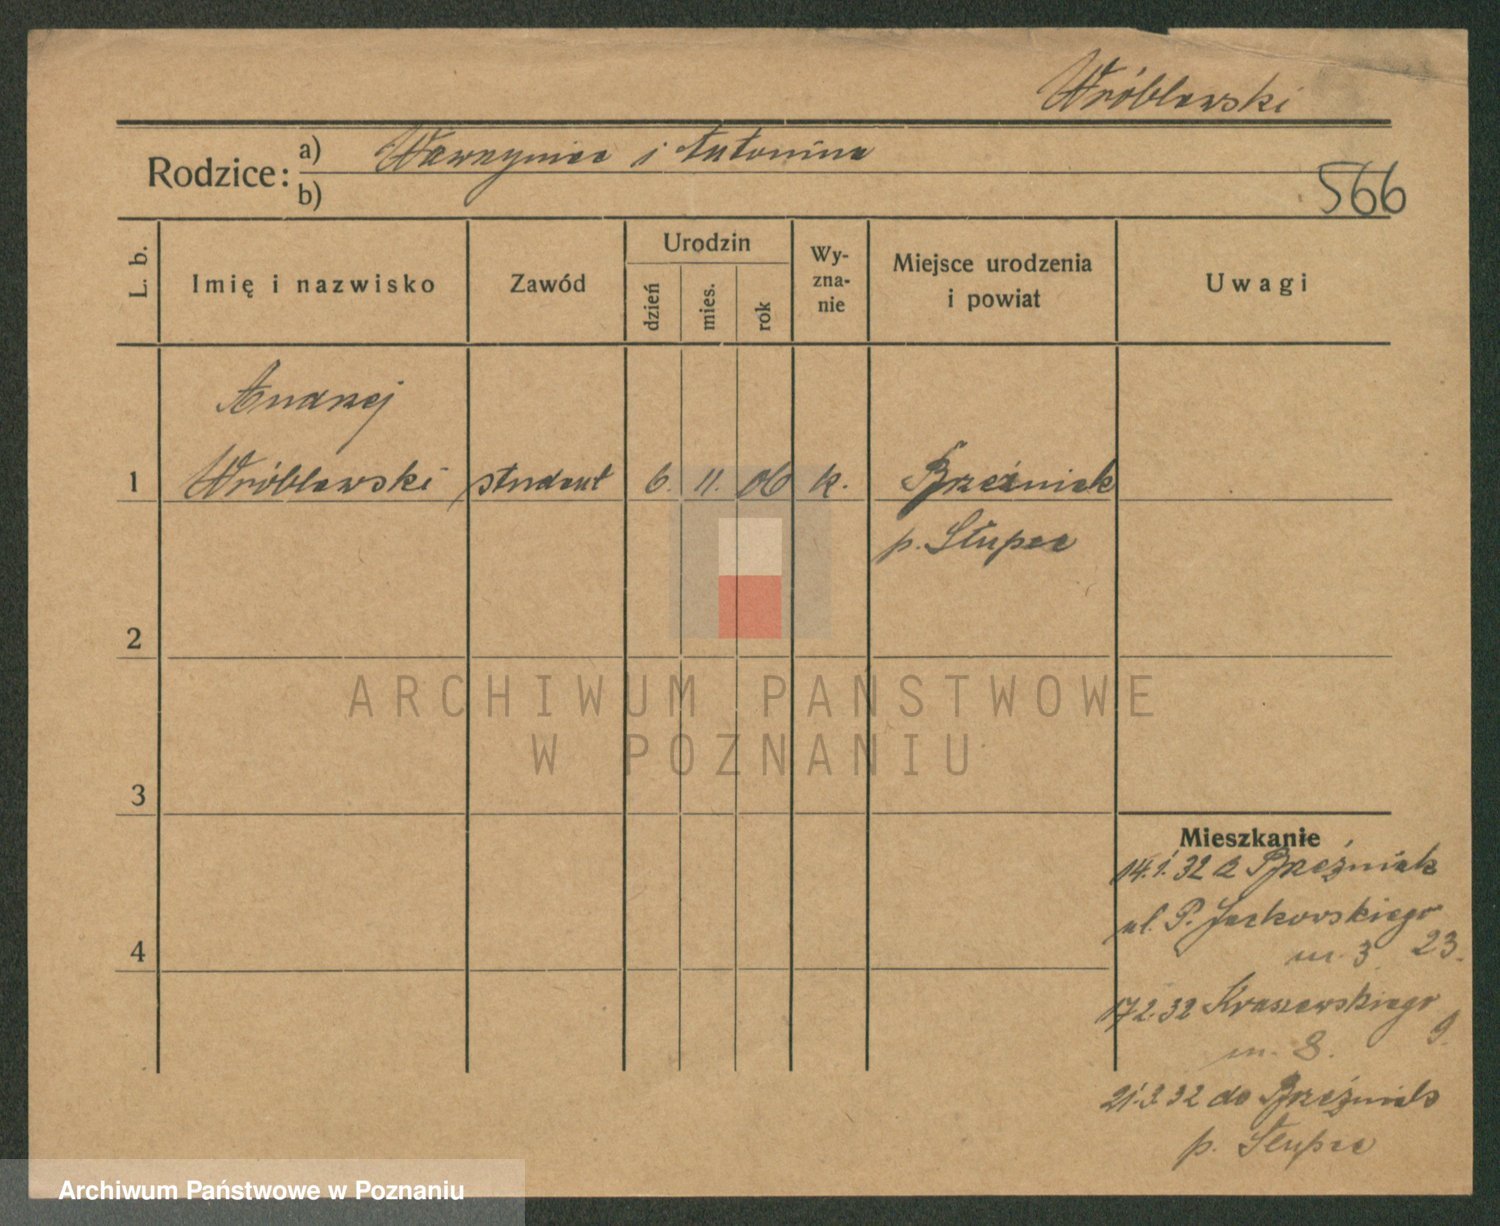 Wróblewski
Rodzice: a) Wawrzyniec i Antonina
b)
566
L. b.
Imię i nazwisko
Zawód
Urodzin
dzień
mies.
rok
Wy-
zna-
nie
Miejsce urodzenia
i powiat
Uwagi
Andrzej
1 Wróblewski student 6. 11. 06 k. Brzeźniak
p. Słupca
2
3
4
Mieszkanie
14.1.32 z Brzeźniak
ul. P. Jackowskiego
m. 3 23.
17.2.32 Kraszewskiego
m. 8. 9.
21.3.32 do Brzeźniak
p. Słupca
ARCHIWUM PAŃSTWOWE
W POZNANIU
Archiwum Państwowe w Poznaniu